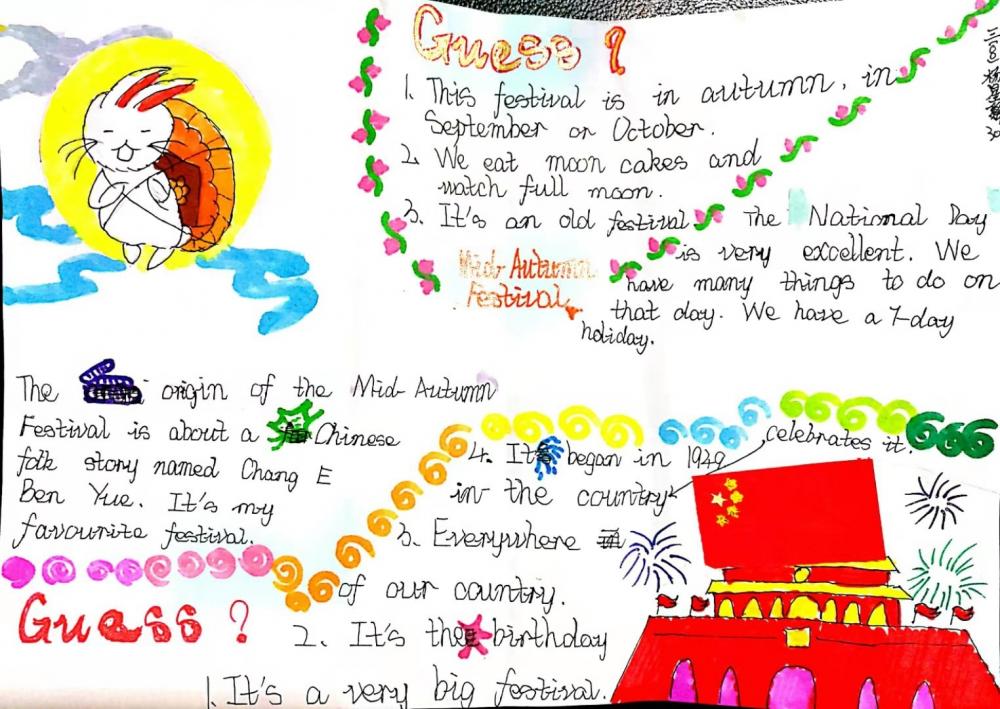 Guess?
1. This festival is in autumn, in
September or October.
2. We eat moon cakes and
watch full moon.
3. It's an old festival.
Mid-Autumn
Festival
The National Day
is very excellent. We
have many things to do on
that day. We have a 7-day
holiday.
The origin of the Mid-Autumn
Festival is about a Chinese
folk story named Chang E
Ben Yue. It's my
favourite festival.
Guess?
1. It's a very big festival.
2. It's the birthday
of our country.
3. Everywhere
in the country
celebrates it.
4. It began in 1949